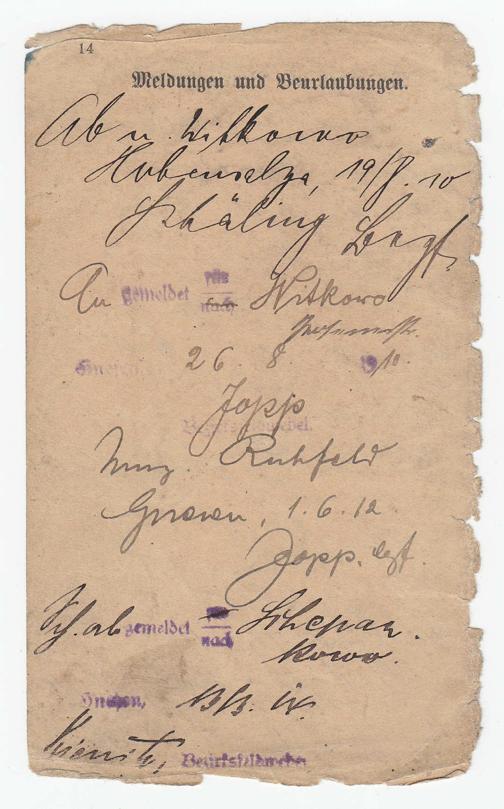 14
Meldungen und Beurlaubungen.
Ab n. Witkowo
Hohensalza, 19/8. 10
Bezf.
An gemeldet für nach Witkowo
Gnesen, 26. 8. 1910.
Jopp
Bezirksfeldwebel.
Ruhfeld
Gnesen, 1.6.12
Jopp. Bezf.
ab gemeldet nach
kowo.
Gnesen, 13/3.
Bezirksfeldwebel